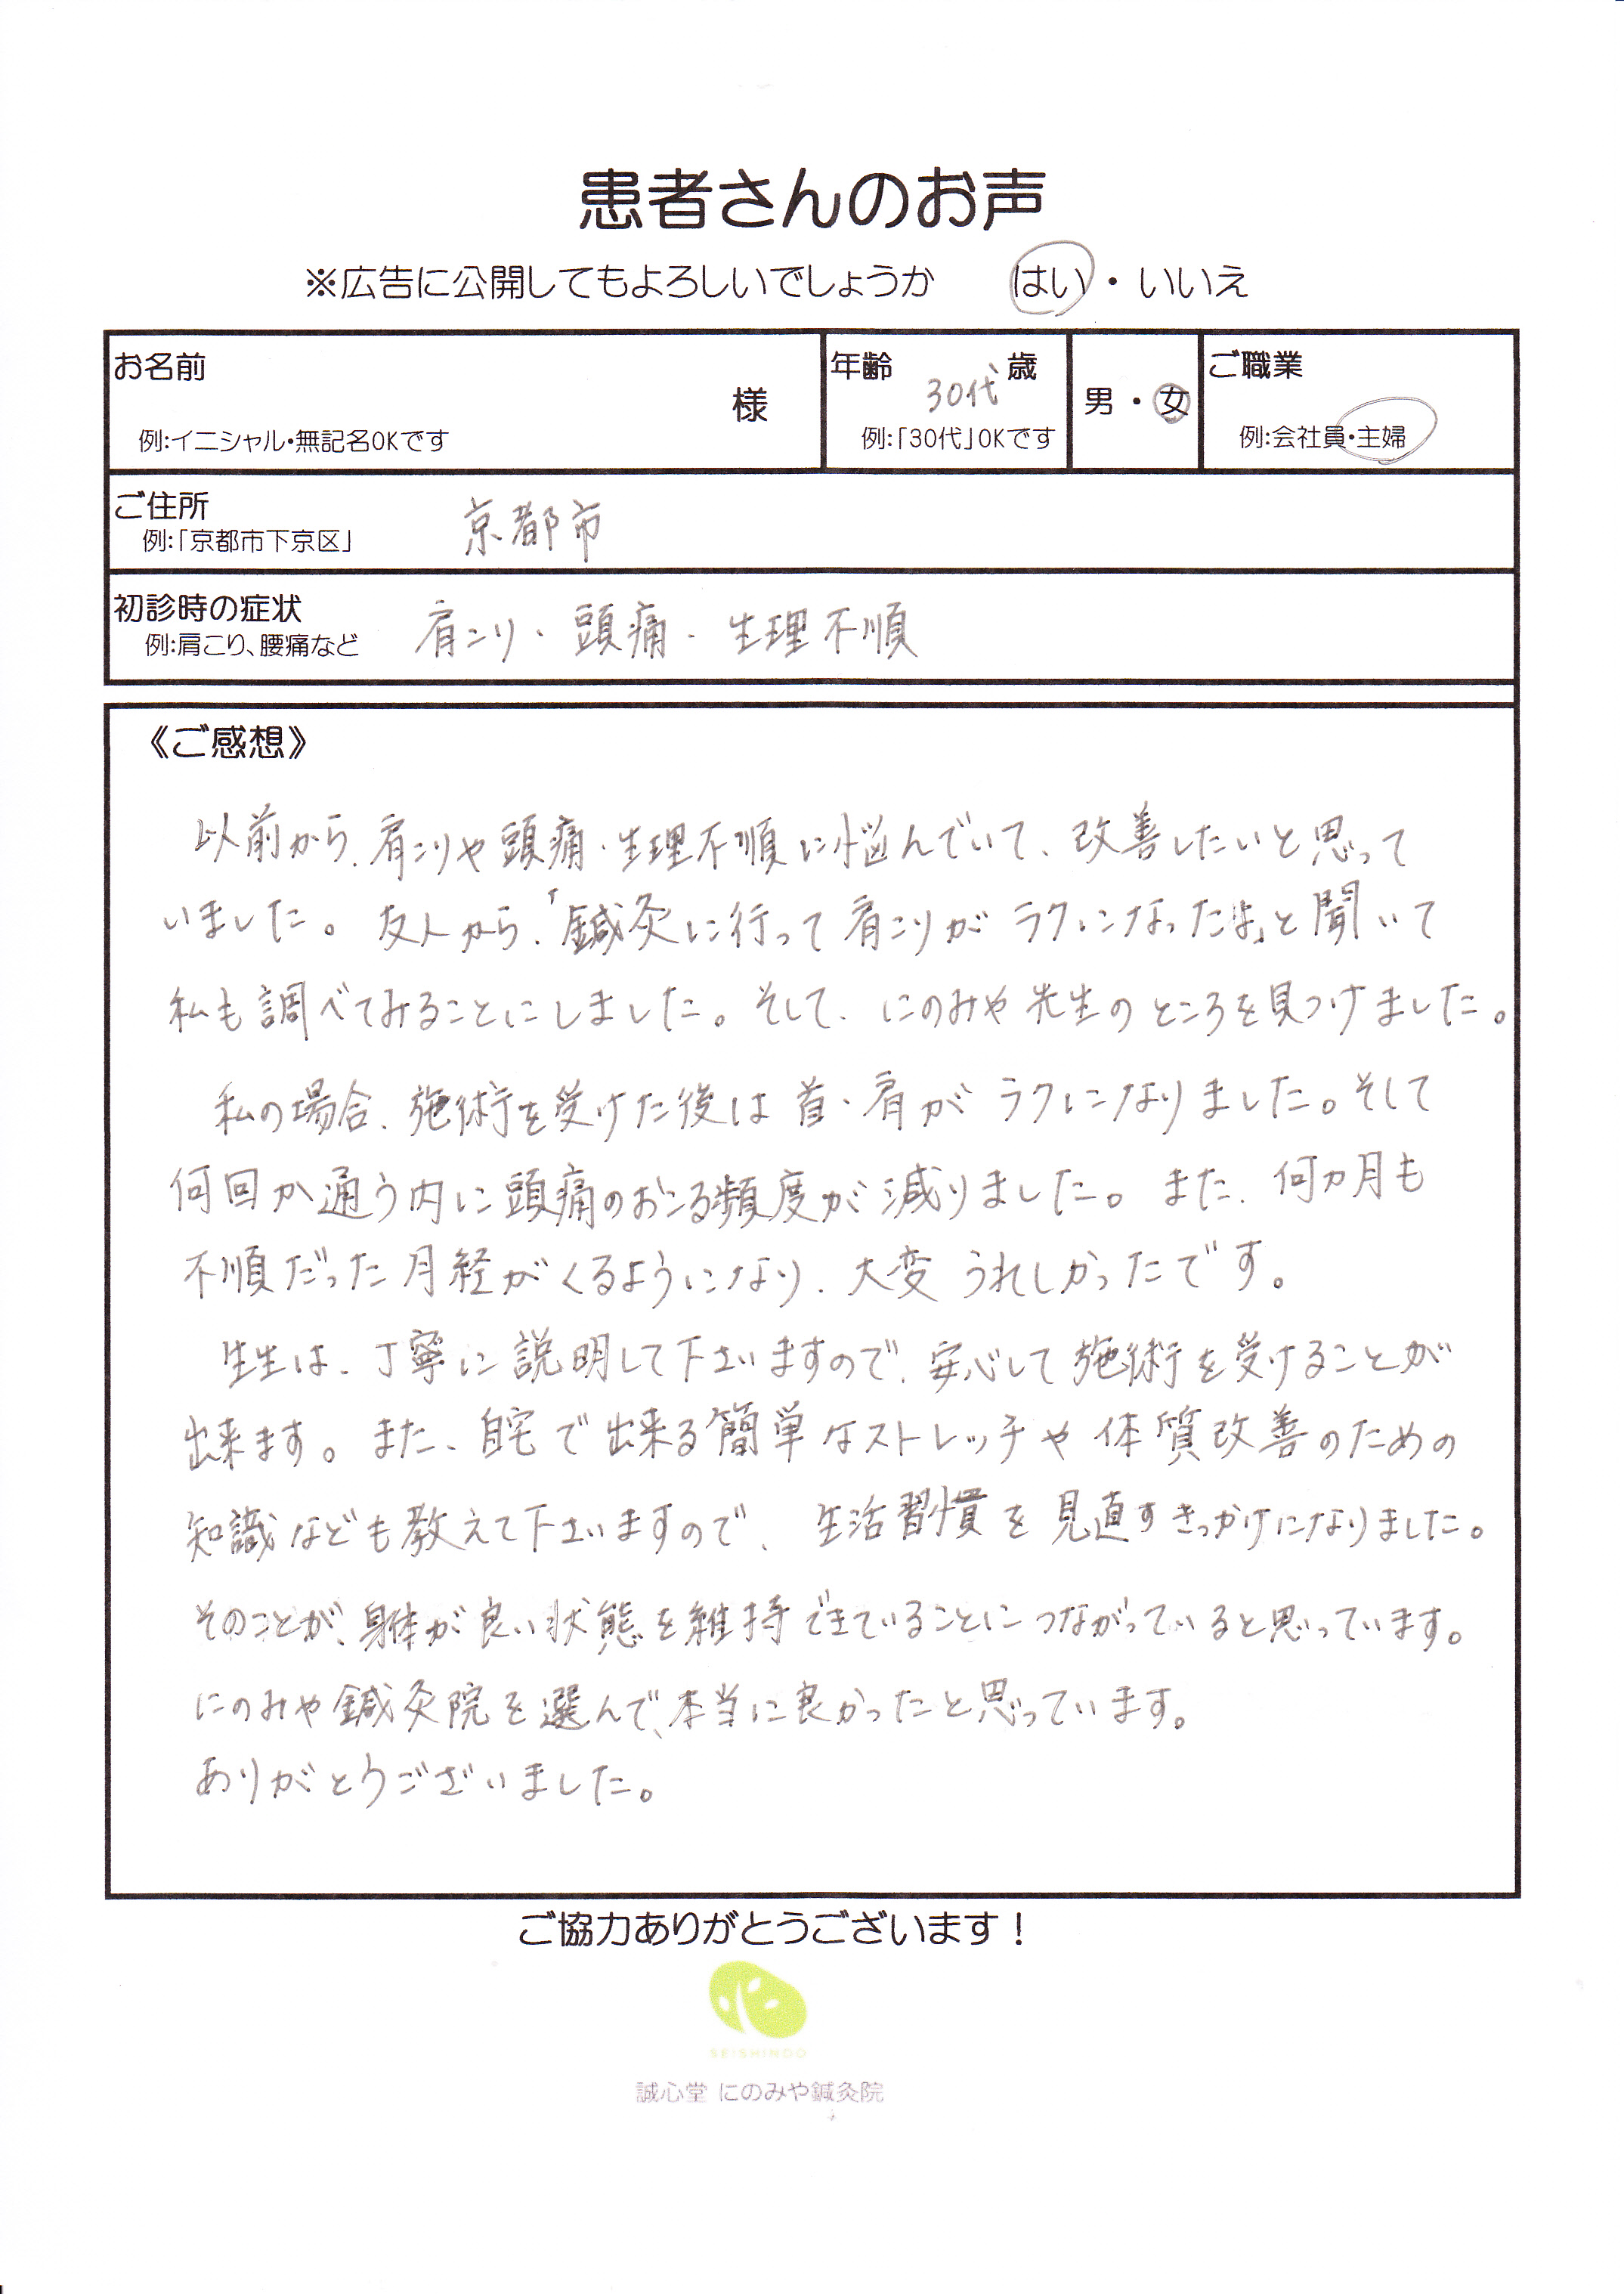 患者さんのお声
※広告に公開してもよろしいでしょうか はい・いいえ
お名前 様 例:イニシャル・無記名OKです
年齢 30代 歳 例:「30代」OKです
男・女
ご職業 例:会社員・主婦
ご住所 例:「京都市下京区」 京都市
初診時の症状 例:肩こり、腰痛など 肩こり・頭痛・生理不順
《ご感想》
以前から、肩こりや頭痛・生理不順に悩んでいて、改善したいと思って
いました。友人から、「鍼灸に行って肩こりがラクになったよ」と聞いて
私も調べてみることにしました。そして、にのみや先生のところを見つけました。
私の場合、施術を受けた後は首・肩がラクになりました。そして
何回か通う内に頭痛のおこる頻度が減りました。また、何カ月も
不順だった月経がくるようになり、大変うれしかったです。
生生は、丁寧に説明して下さいますので、安心して施術を受けることが
出来ます。また、自宅で出来る簡単なストレッチや体質改善のための
知識なども教えて下さいますので、生活習慣を見直すきっかけになりました。
そのことが、身体が良い状態を維持できていることにつながっていると思っています。
にのみや鍼灸院を選んで、本当に良かったと思っています。
ありがとうございました。
ご協力ありがとうございます!
SEISHINDO
誠心堂 にのみや鍼灸院